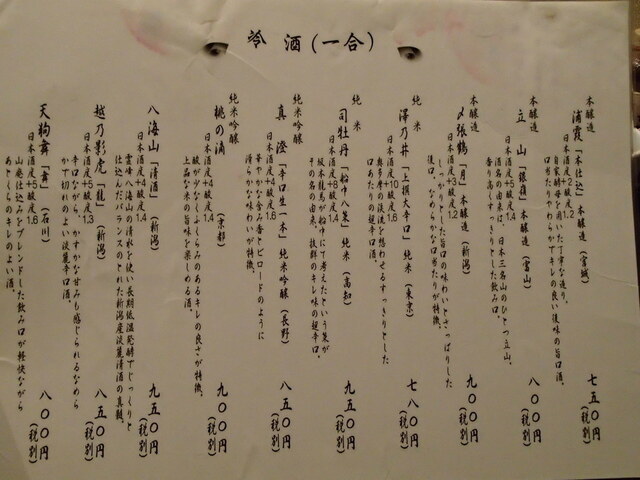 冷酒(一合)
本醸造
浦霞「本仕込」本醸造(宮城)
日本酒度+2酸度1.2
自家酵母を用いた丁寧な造り。
口当たりやわらかでキレの良い後味の旨口酒。
七五〇円
(税別)
本醸造
立山「銀嶺」本醸造(富山)
日本酒度+5酸度1.4
酒名の由来は、日本三名山のひとつ立山。
香り高くすっきりとした飲み口。
八〇〇円
(税別)
本醸造
〆張鶴「月」本醸造(新潟)
日本酒度+3酸度1.2
しっかりとした旨口の味わいとさっぱりした
後口。なめらかな口当たりが特徴。
九〇〇円
(税別)
純米
澤乃井「上撰大辛口」純米(東京)
日本酒度+10酸度1.6
奥多摩の渓流を想わせるすっきりとした
口あたりの超辛口酒。
七八〇円
(税別)
純米
司牡丹「船中八策」純米(高知)
日本酒度+8酸度1.4
坂本龍馬が船中にて考えたという策が
その名の由来。抜群のキレ味の超辛口。
九五〇円
(税別)
純米吟醸
真澄「辛口生一本」純米吟醸(長野)
日本酒度+4酸度1.6
華やかな含み香とビロードのように
滑らかな味わいが特徴。
八五〇円
(税別)
純米吟醸
桃の滴(京都)
日本酒度+4酸度1.4
酸が少なく、ふくらみのあるキレの良さが特徴。
上品な米の旨味を楽しめる酒。
九〇〇円
(税別)
八海山「清酒」(新潟)
日本酒度+4酸度1.4
霊峰八海山の清水を使い長期低温発酵でじっくりと
仕込んだバランスのとれた新潟産淡麗清酒の真髄。
九五〇円
(税別)
越乃影虎「龍」(新潟)
日本酒度+5酸度1.3
辛口ながら、かすかな甘みも感じられるなめら
かで切れのよい淡麗辛口酒。
八五〇円
(税別)
天狗舞「舞」(石川)
日本酒度+5酸度1.6
山廃仕込みをブレンドした飲み口が軽快ながら
あとくちのキレのよい酒。
八〇〇円
(税別)